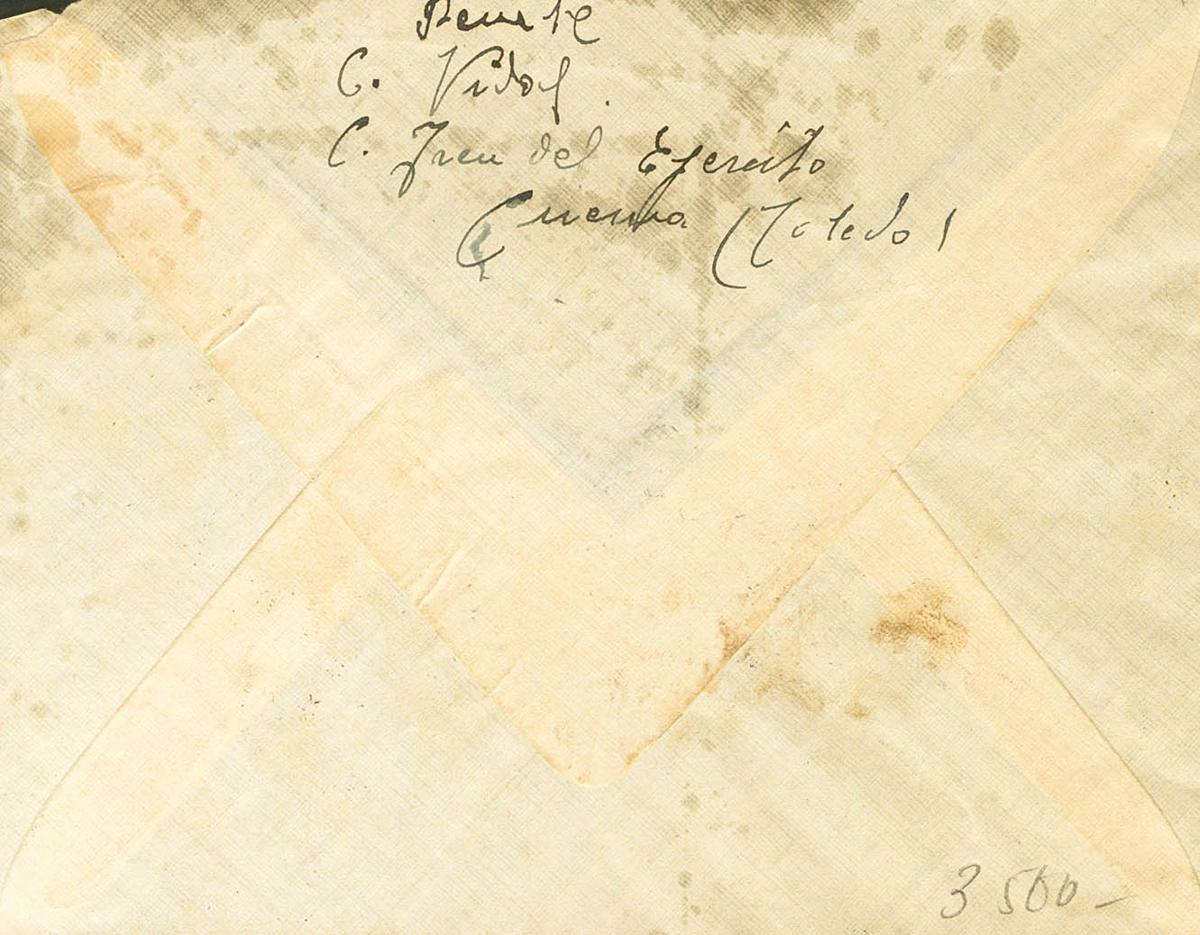 Remite
C. Vidal.
C. Tren del Ejercito
(Toledo)
3 500 -